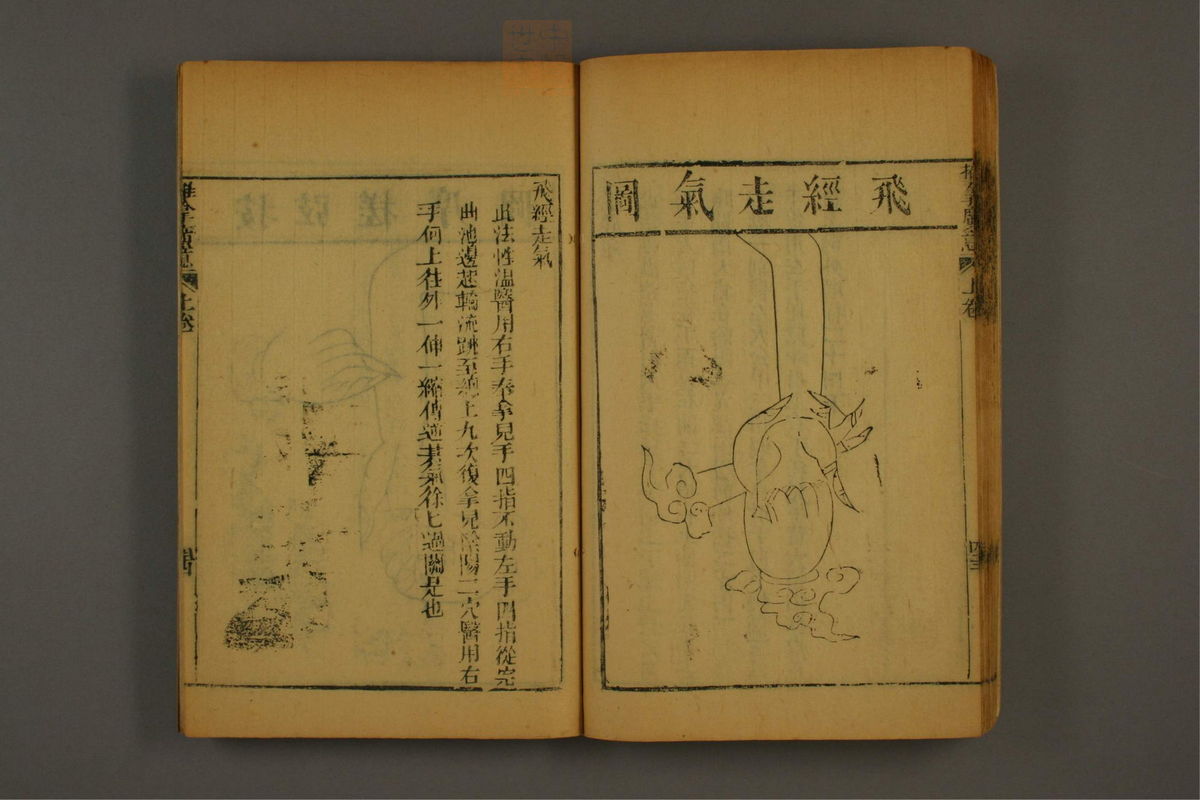 飛經走氣圖
飛經走氣
此法性溫醫用右手奉拿兒手四指不動左手四指從完
曲池邊起輪流跳至總上九次復拿兒陰陽二穴醫用右
手向上往外一伸一縮傳逓其氣徐徐過關是也
推拿廣意
上卷
四三
推拿廣意
上卷